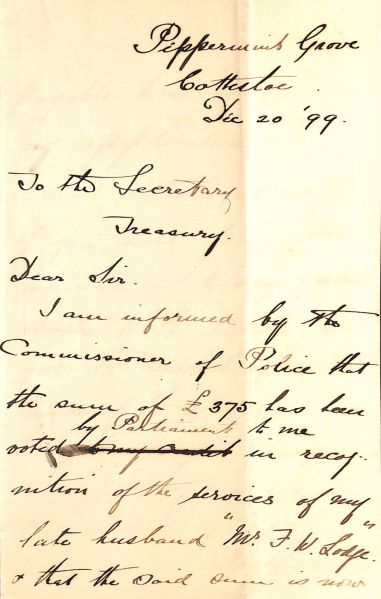 Peppermint Grove
Cottesloe
Dec 20 '99.
To the Secretary
Treasury.
Dear Sir.
I am informed by the
Commissioner of Police that
the sum of £375 has been
by Parliament to me
voted to my credit in recog-
nition of the services of my
late husband "Mr. F. W. Lodge."
& that the said sum is now